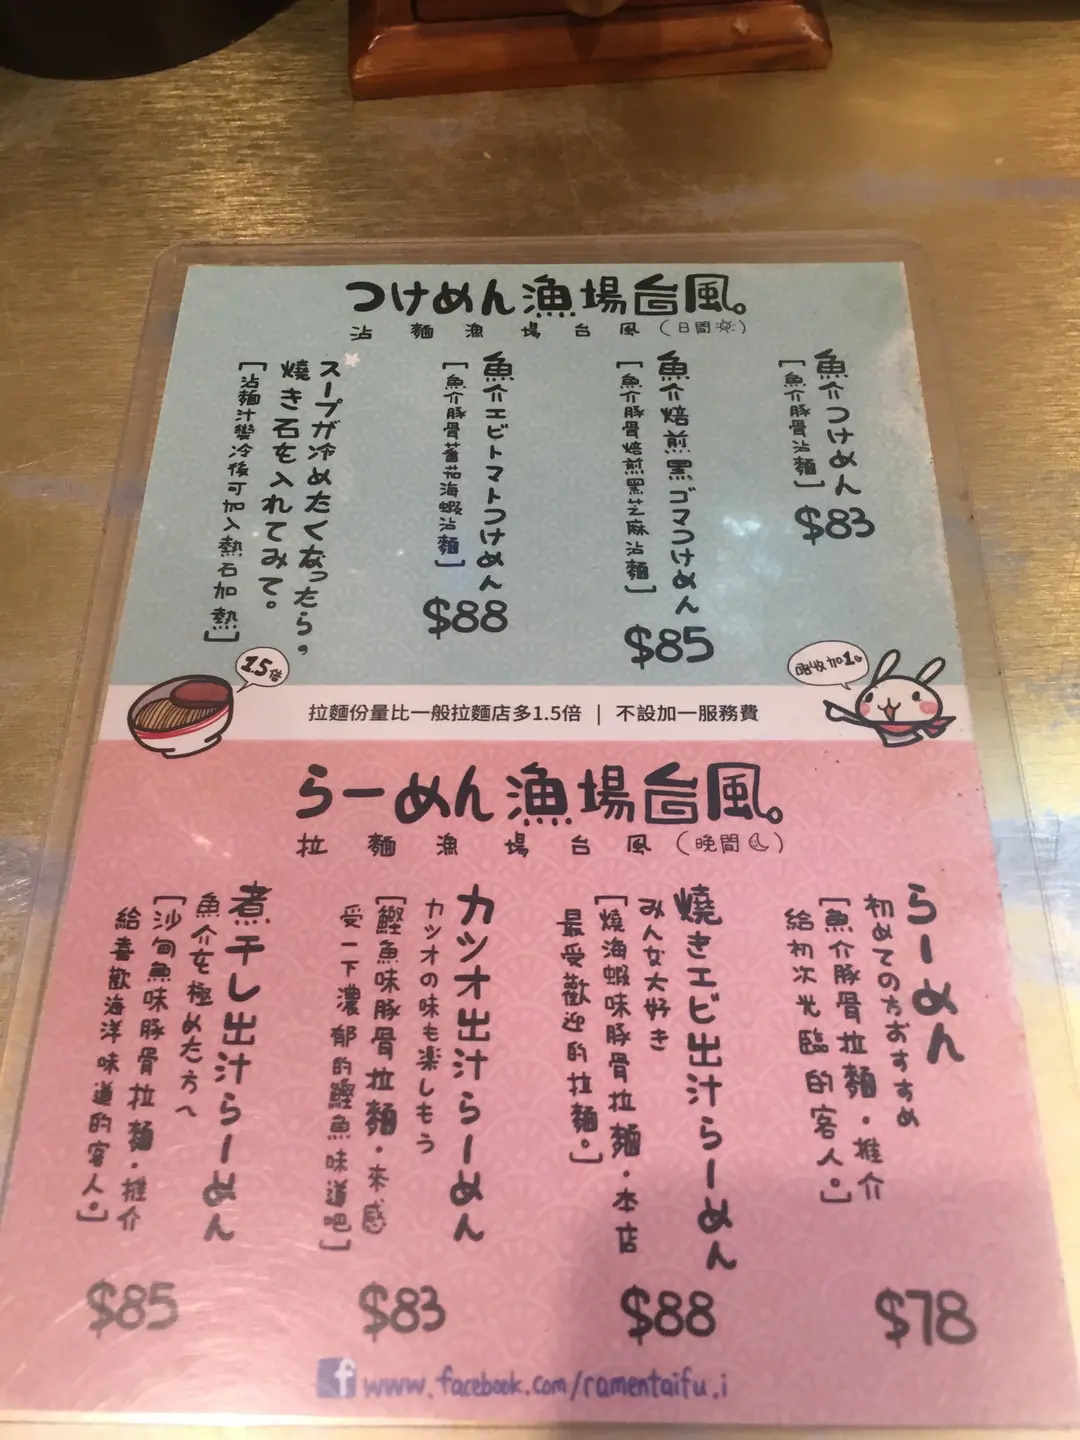 つけめん漁場台風。
沾麵漁場台風（日間）
魚介つけめん
［魚介豚骨沾麵］
$83
魚介焙煎黒ゴマつけめん
［魚介豚骨焙煎黑芝麻沾麵］
$85
魚介エビトマトつけめん
［魚介豚骨蕃茄海蝦沾麵］
$88
スープが冷めたくなったら。
焼き石を入れてみて。
［沾麵汁變冷後可加入熱石加熱］
1.5倍
唔收加1。
拉麵份量比一般拉麵店多1.5倍 | 不設加一服務費
らーめん漁場台風。
拉麵漁場台風（晚間）
らーめん
初めての方おすすめ
［魚介豚骨拉麵・推介
給初次光臨的客人。］
$78
焼きエビ出汁らーめん
みんな大好き
［燒海蝦味豚骨拉麵・本店
最受歡迎的拉麵。］
$88
カツオ出汁らーめん
カツオの味も楽しもう
［鰹魚味豚骨拉麵・來感
受一下濃郁的鰹魚味道吧］
$83
煮干し出汁らーめん
魚介を極めた方へ
［沙甸魚味豚骨拉麵・推介
給喜歡海洋味道的客人。］
$85
f www.facebook.com/ramentaifu.i